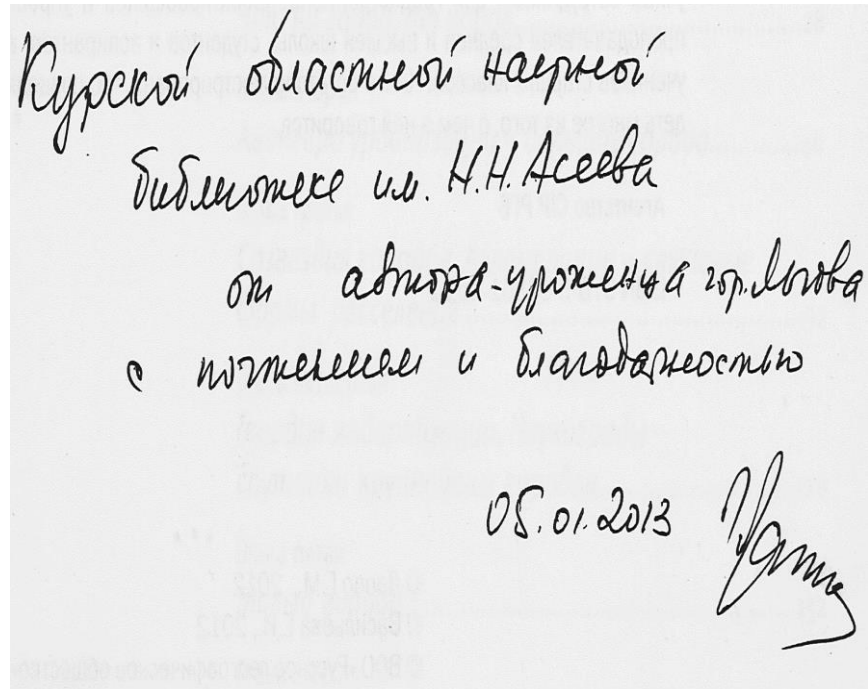 Курской областной научной
библиотеке им. Н.Н. Асеева
от автора-уроженца гор. Льгова
с почтением и благодарностью
05.01.2013